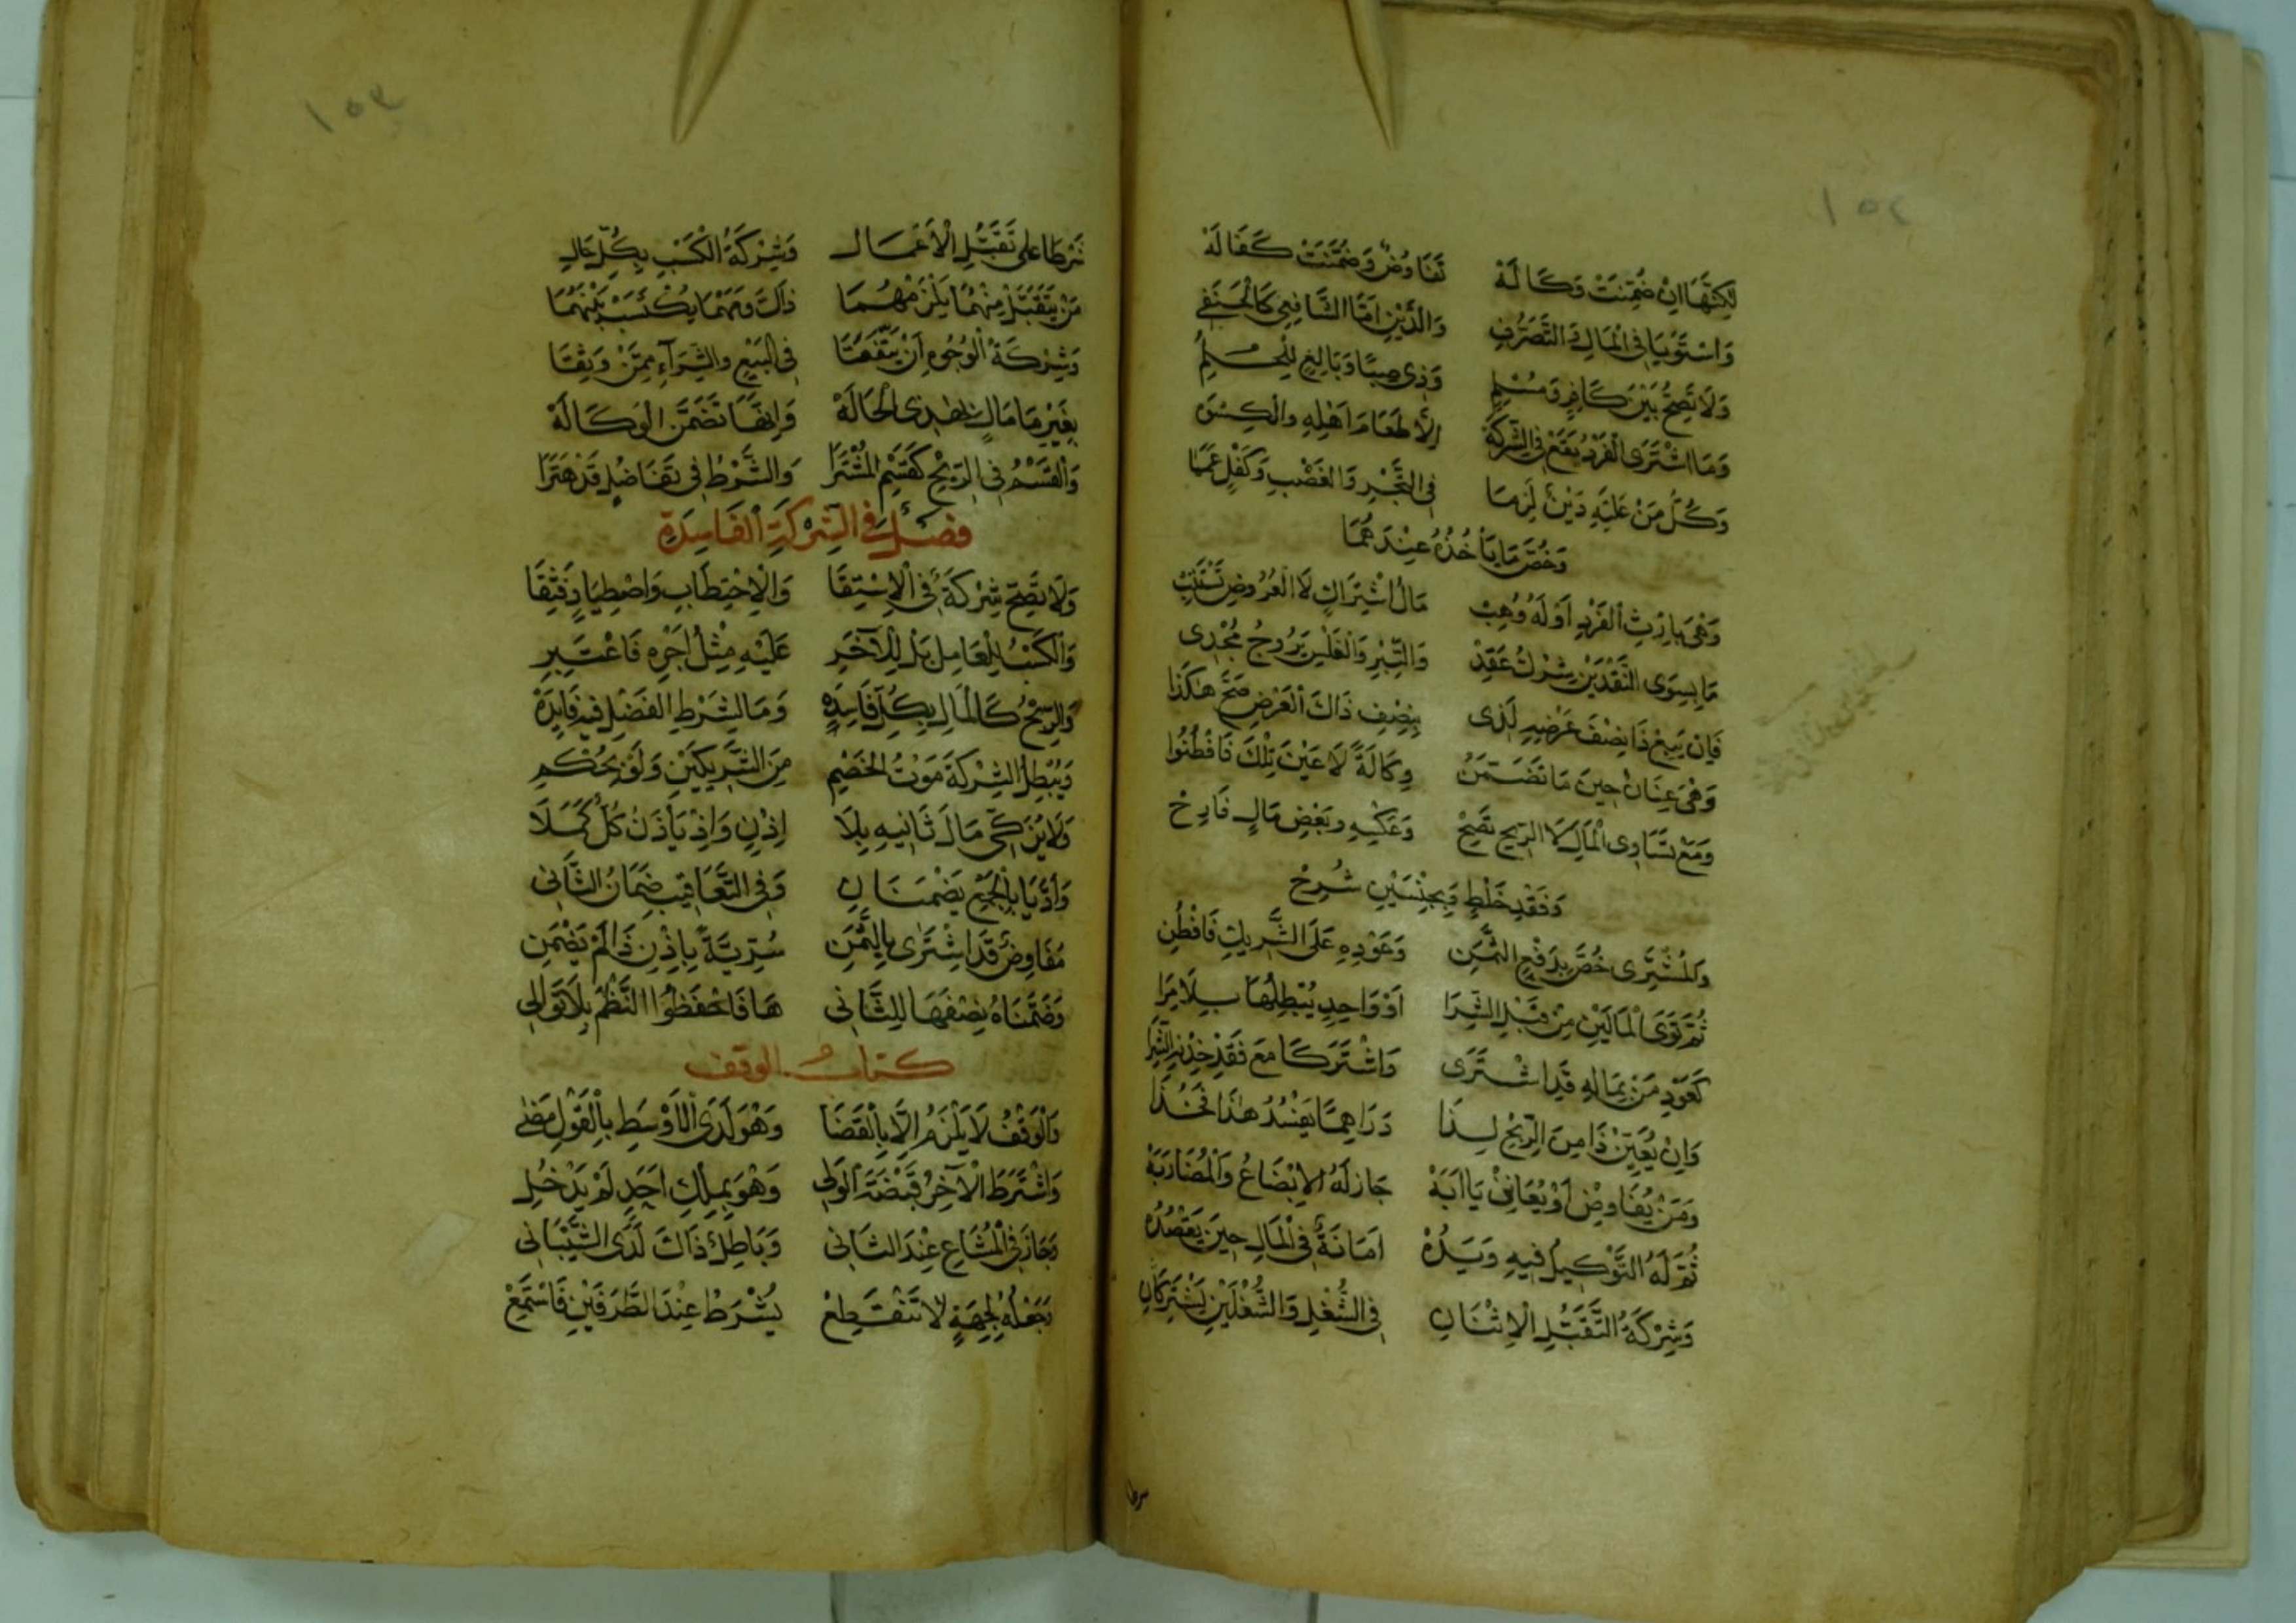 ١٥٢
لَكِنَّهَا اِنْ ضُمِّنَتْ وَكَالَهْ تَفَاوُضٌ وَضُمِّنَتْ كَفَالَهْ
وَاسْتَوَيَا فِي الْمَالِ وَالتَّصَرُّفِ وَالدَّيْنِ اَمَّا الشَّافِعِي كَالْحَنَفِي
وَلَا تَصِحُّ بَيْنَ كَافِرٍ وَمُسْلِمِ وَذِي صِبًا وَبَالِغٍ لِلْحُلُمِ
وَمَا اشْتَرَى الْفَرْدُ يَقَعْ فِي الشِّرْكَةْ اِلَّا طَعَامَ اَهْلِهِ وَالْكِسْوَهْ
وَكُلُّ مَنْ عَلَيْهِ دَيْنٌ لَزِمَا فِي التَّجْرِ وَالْغَصْبِ وَكَفْلٍ عَمَّا
وَخُصَّ مَا يَأْخُذُهُ عِنْدَهُمَا
وَهْيَ بِاِرْثِ الْفَرْدِ اَوْ لَهُ وُهِبْ مَالُ اشْتِرَاكٍ لَا الْعُرُوضِ تَنْقَلِبْ
مَا بِسِوَى النَّقْدَيْنِ شِرْكٌ عَقْدِ وَالتِّبْرِ وَالْفَلْسِ يَرُوجُ مُجْدِي
فَاِنْ يَبِعْ ذَا نِصْفَ عَرْضِهِ لَذِي بِنِصْفِ ذَاكَ الْعَرْضِ صَحَّ هَكَذَا
وَهْيَ عِنَانٌ حِينَ مَا تَضَمَّنُ وِكَالَةً لَا عَيْنَ تِلْكَ فَافْطُنُوا
وَمَعْ تَسَاوِي الْمَالِ لَا الرِّبْحِ تَصِحْ وَعَكْسِهِ وَبَعْضِ مَالٍ
وَفَقْدِ خَلْطٍ وَبِجِنْسَيْنِ شُرِحْ
وَالْمُشْتَرِي خُصَّ بِدَفْعِ الثَّمَنِ وَعَوْدِهِ عَلَى الشَّرِيكِ فَافْطُنِ
ثُمَّ تَوَى الْمَالَيْنِ مِنْ قَبْلِ الشِّرَا اَوْ وَاحِدٍ يُبْطِلُهَا بِلَا مِرَا
كَعَوْدِ مَنْ بِمَالِهِ قَدِ اشْتَرَى وَاشْتَرَكَا مَعَ فَقْدِ
وَاِنْ يُعَيِّنْ ذَا مِنَ الرِّبْحِ لِذَا دَرَاهِمًا يَفْسُدُ هَذَا فَخُذَا
وَمَنْ يُفَاوِضْ اَوْ يُعَانِنْ يَا اَبَهْ جَازَ لَهُ الْاِبْضَاعُ وَالْمُضَارَبَهْ
ثُمَّ لَهُ التَّوْكِيلُ فِيهِ وَيَدُهْ اَمَانَةٌ فِي الْمَالِ حِينَ يَقْصُدُهْ
وَشِرْكَةُ التَّقَبُّلِ الْاِثْنَانِ فِي الشُّغْلِ وَالشُّغْلَيْنِ يَشْتَرِكَانِ
شرطا
١٥٣
شَرْطًا عَلَى تَقَبُّلِ الْاَعْمَالِ وَشِرْكَةُ الْكَسْبِ بِكُلِّ حَالِ
مَنْ يَتَقَبَّلْ مِنْهُمَا يَلْزَمْهُمَا ذَاكَ وَمَهْمَا يُكْتَسَبْ بَيْنَهُمَا
وَشِرْكَةُ الْوُجُوهِ اَنْ يَتَّفِقَا فِي الْبَيْعِ وَالشِّرَاءِ مِمَّنْ وَثِقَا
بِغَيْرِ مَا مَالٍ لِهَذِي الْحَالَهْ وَاِنَّهَا تَضَمَّنُ الْوَكَالَهْ
وَالْقَسْمُ فِي الرِّبْحِ كَقَسْمِ الْمُشْتَرَا وَالشَّرْطُ فِي تَفَاضُلٍ قَدْ هُتِرَا
فصل في الشركة الفاسدة
وَلَا تَصِحُّ شِرْكَةٌ فِي الْاِسْتِقَا وَالْاِحْتِطَابِ وَاصْطِيَادٍ فَثِقَا
وَالْكَسْبُ لِلْعَامِلِ بَلْ لِلْآخَرِ عَلَيْهِ مِثْلُ اَجْرِهِ فَاعْتَبِرِ
وَالرِّبْحُ كَالْمَالِ بِكُلٍّ فَاسِدَهْ وَمَا لِشَرْطِ الْفَضْلِ فِيهِ فَايِدَهْ
وَيُبْطِلُ الشِّرْكَةَ مَوْتُ الْخَصْمِ مِنَ الشَّرِيكَيْنِ وَلَوْ بِحُكْمِ
وَلَا يُزَكِّي مَالَ ثَانِيهِ بِلَا اِذْنٍ وَاِذْ يَأْذَنُ كُلٌّ كَمَلَا
وَاَدَّيَا بِالْجَمْعِ يَضْمَنَانِ وَفِي التَّعَاقُبِ ضَمَانُ الثَّانِي
مُفَاوِضٌ قَدِ اشْتَرَى بِالثَّمَنِ سُرِّيَّةً بِاِذْنِ ذَا لَمْ يَضْمَنِ
وَضَمَّنَاهُ نِصْفَهَا لِلثَّانِي هَا فَاحْفَظُوا النَّظْمَ بِلَا تَوَانِي
كتاب الوقف
وَالْوَقْفُ لَا يَلْزَمُ اِلَّا بِالْقَضَا وَهْوَ لَدَى الْاَوْسَطِ بِالْقَوْلِ مَضَى
وَاشْتَرَطَ الْآخِرُ قَبْضَةَ الْوَلِي وَهْوَ بِمِلْكِ اَحَدٍ لَمْ يَدْخُلِ
وَجَازَ فِي الْمُشَاعِ عِنْدَ الثَّانِي وَبَاطِلٌ ذَاكَ لَدَى الشَّيْبَانِي
وَجَعْلُهُ لِجِهَةٍ لَا تَنْقَطِعْ يُشْرَطُ عِنْدَ الطَّرَفَيْنِ فَاسْتَمِعْ